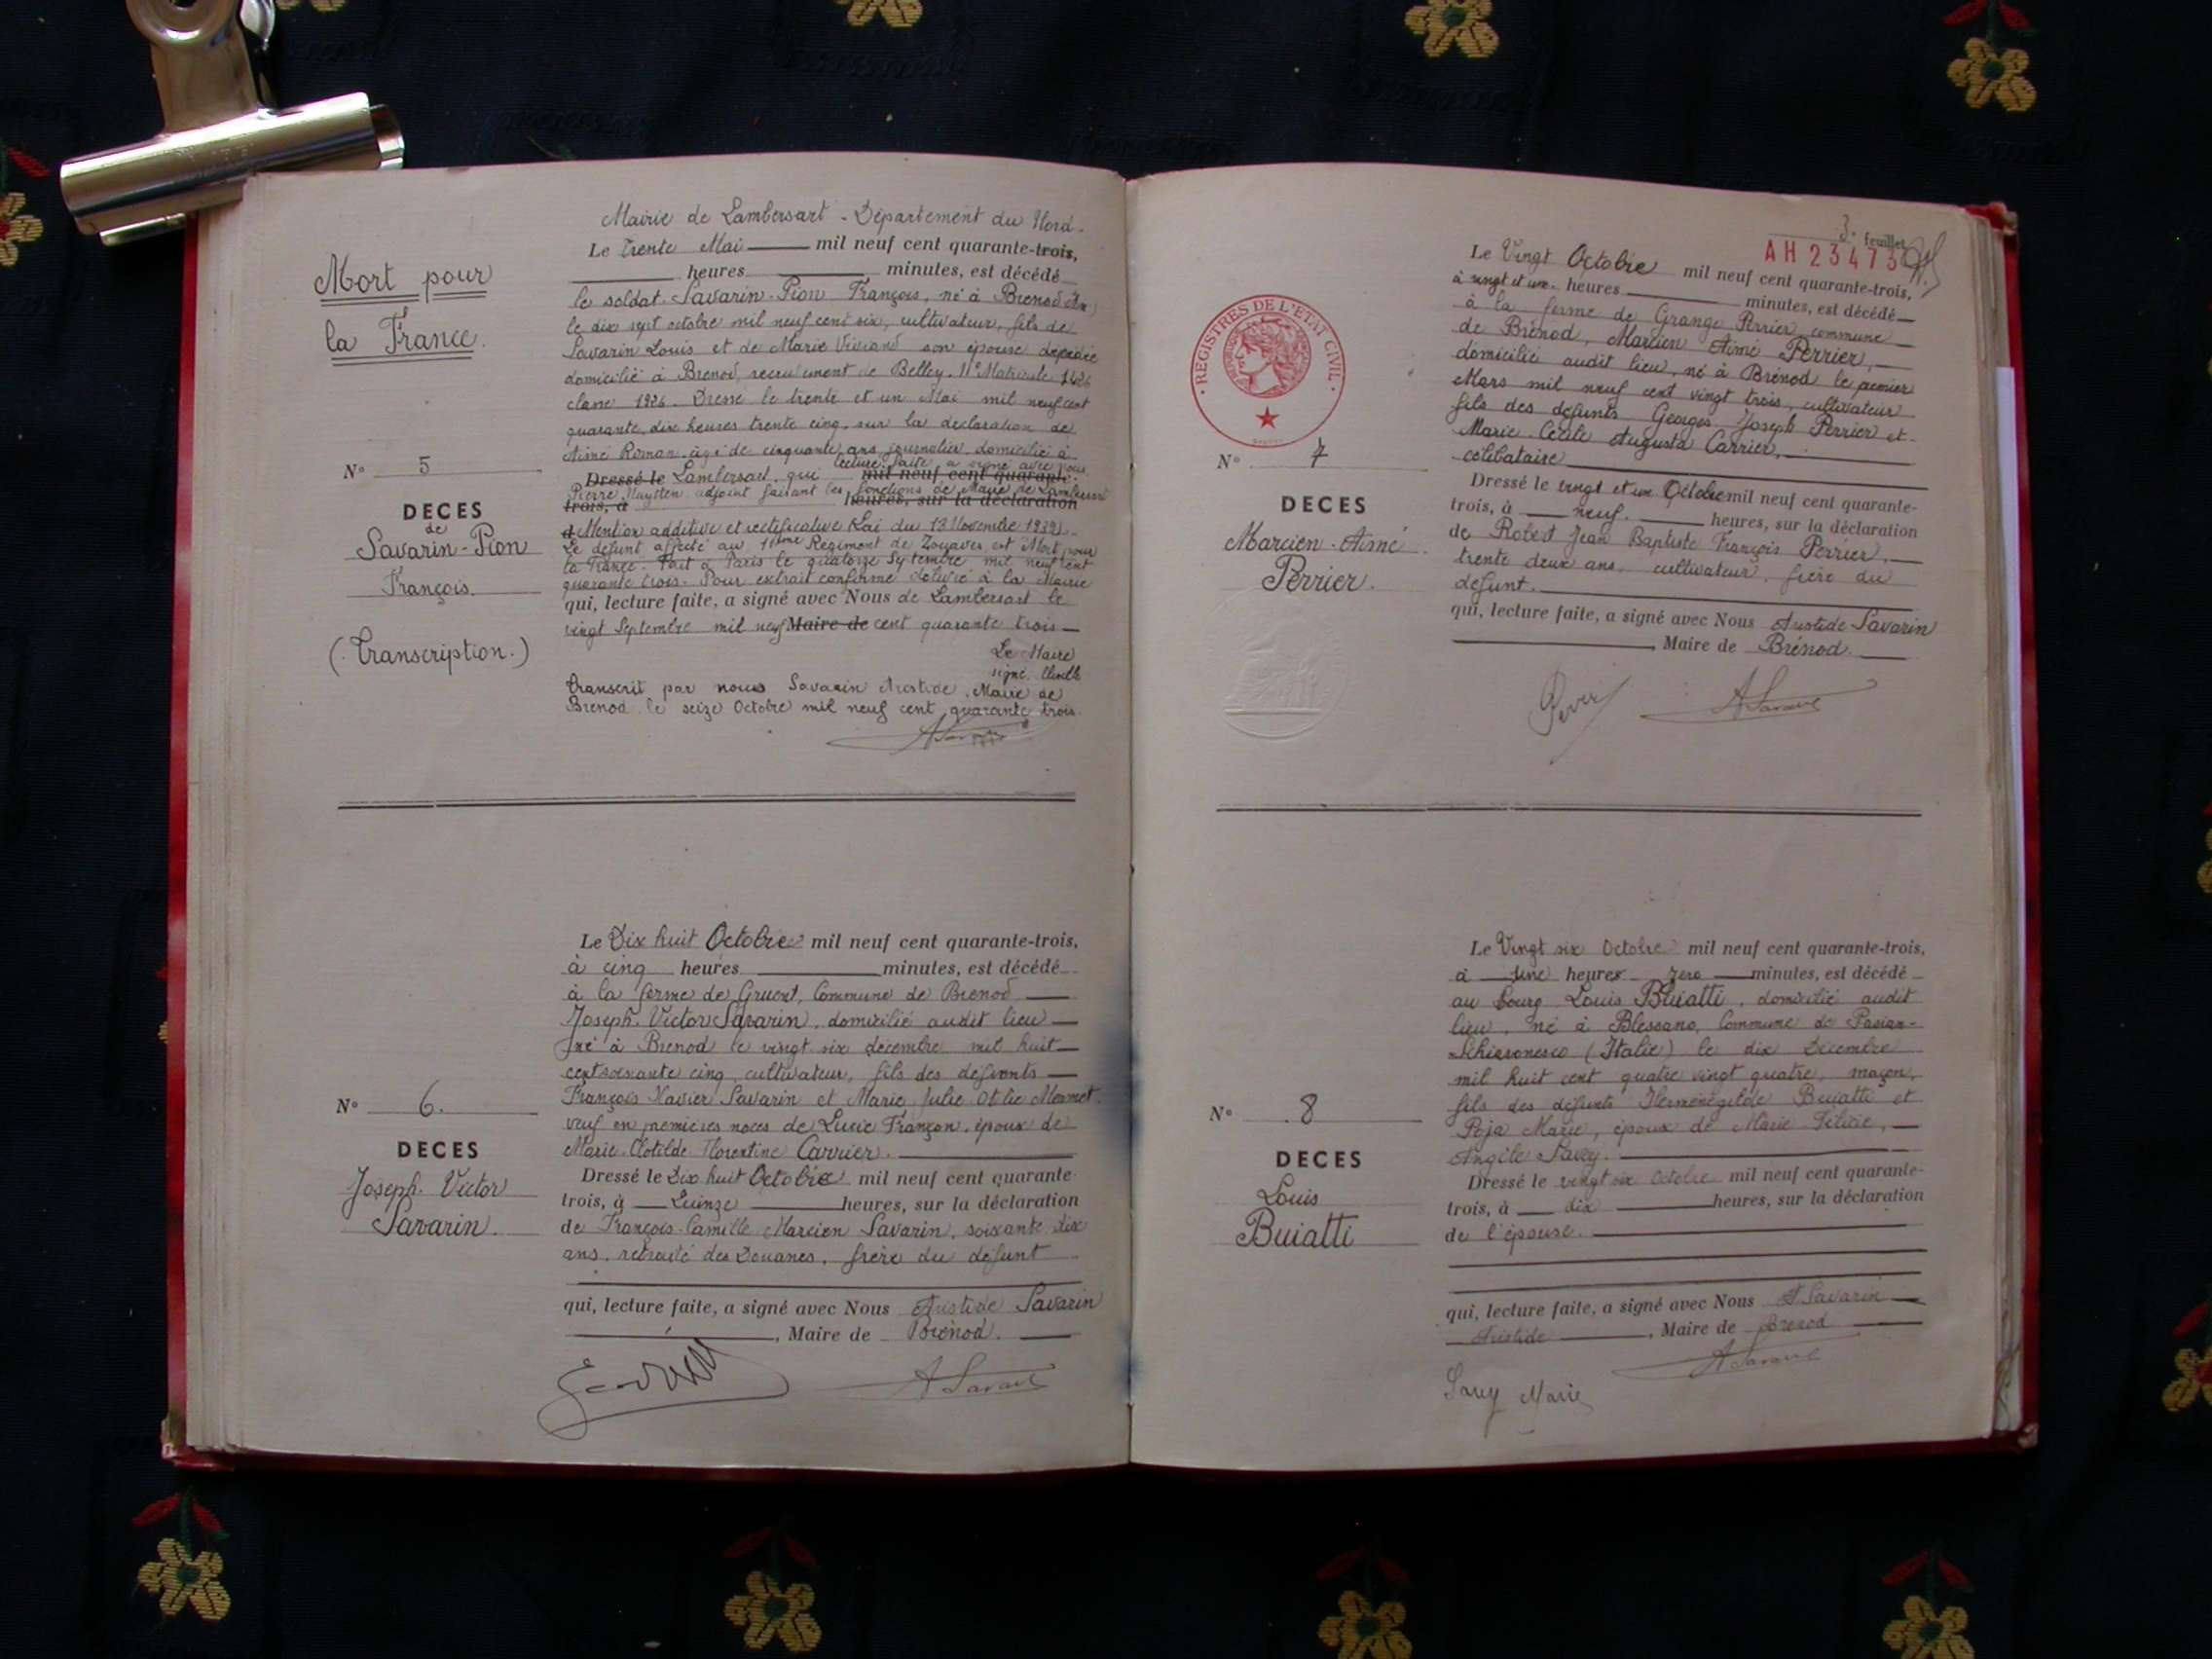 Mairie de Lambersart - Département du Nord -
Le trente Mai mil neuf cent quarante-trois,
heures minutes, est décédé
Mort pour
la France.
le soldat Savarin-Pion François, né à Brénod (Ain)
le dix sept octobre mil neuf cent six, cultivateur, fils de
Savarin Louis et de Marie Viviand son épouse décédée
domicilié à Brénod, recrutement de Belley. N° Matricule 1426
classe 1926. Dressé le trente et un Mai mil neuf cent
quarante, dix heures trente cinq, sur la déclaration de
Aimé Roman, âgé de cinquante ans, journalier, domicilié à
N° 5
Dressé le Lambersart, qui lecture faite a signé avec nous mil neuf cent quarante-
Pierre adjoint faisant les fonctions de Maire de Lambersart
trois, à heures, sur la déclaration
d Mention additive et rectificative Loi du 13 Novembre 1939.
Le défunt affecté au 11ème Régiment de Zouaves est Mort pour
la France. Fait à Paris le quatorze Septembre mil neuf cent
quarante trois. Pour extrait conforme délivré à la Mairie
qui, lecture faite, a signé avec Nous de Lambersart le
vingt Septembre mil neuf Maire de cent quarante trois
DECES
de
Savarin-Pion
François.
(Transcription.)
Le Maire
signé
transcrit par nous Savarin Aristide, Maire de
Brénod le seize Octobre mil neuf cent quarante trois.
Le Dix huit Octobre mil neuf cent quarante-trois,
à cinq heures minutes, est décédé
à la ferme de Gruent, Commune de Brénod
Joseph. Victor Savarin, domicilié audit lieu
né à Brénod le vingt six décembre mil huit
cent soixante cinq, cultivateur, fils des défunts
François Xavier Savarin et Marie Julie Otilie Mermet.
veuf en premières noces de Lucie Françon, époux de
Marie. Clotilde Florentine Carrier.
N° 6.
DECES
Joseph. Victor
Savarin.
Dressé le Dix huit Octobre mil neuf cent quarante-
trois, à Quinze heures, sur la déclaration
de François-Camille Marcien Savarin, soixante dix
ans, retraité des Douanes, frère du défunt
qui, lecture faite, a signé avec Nous Aristide Savarin
, Maire de Brénod.
A Savarin
3. feuillet
AH 23473
REGISTRES DE L'ETAT CIVIL
Le Vingt Octobre mil neuf cent quarante-trois,
à vingt et une heures minutes, est décédé
à la ferme de Grange Perrier commune
de Brénod, Marcien Aimé Perrier,
domicilié audit lieu, né à Brénod le premier
Mars mil neuf cent vingt trois, cultivateur
fils des défunts Georges Joseph Perrier et
Marie-Cécile Augusta Carrier,
célibataire
N° 7
DECES
Marcien-Aimé
Perrier.
Dressé le vingt et un Octobre mil neuf cent quarante-
trois, à neuf. heures, sur la déclaration
de Robert Jean Baptiste François Perrier,
trente deux ans, cultivateur, frère du
défunt.
qui, lecture faite, a signé avec Nous Aristide Savarin
, Maire de Brénod.
A Savarin
Le Vingt six Octobre mil neuf cent quarante-trois,
à une heures zéro minutes, est décédé
au bourg Louis Buiatti, domicilié audit
lieu, né à Blessano, Commune de Pasian-
Schiavonesco (Italie) le dix Décembre
mil huit cent quatre vingt quatre, maçon,
fils des défunts Herménégilde Buiatti et
Poja Marie, époux de Marie Félicie,
Angèle Savey.
N° 8
DECES
Louis
Buiatti
Dressé le vingt six Octobre mil neuf cent quarante-
trois, à dix heures, sur la déclaration
de l'épouse.
qui, lecture faite, a signé avec Nous A Savarin
Aristide , Maire de Brénod
A Savarin
Savey Marie